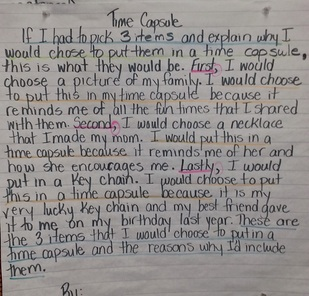 Time Capsule
If I had to pick 3 items and explain why I
would chose to put them in a time capsule,
this is what they would be. First, I would
choose a picture of my family. I would choose
to put this in my time capsule because it
reminds me of all the fun times that I shared
with them. Second, I would choose a necklace
that I made my mom. I would put this in a
time capsule because it reminds me of her and
how she encourages me. Lastly, I would
put in a key chain. I would choose to put
this in a time capsule because it is my
very lucky key chain and my best friend gave
it to me on my birthday last year. These are
the 3 items that I would choose to put in a
time capsule and the reasons why I'd include
them.
By: